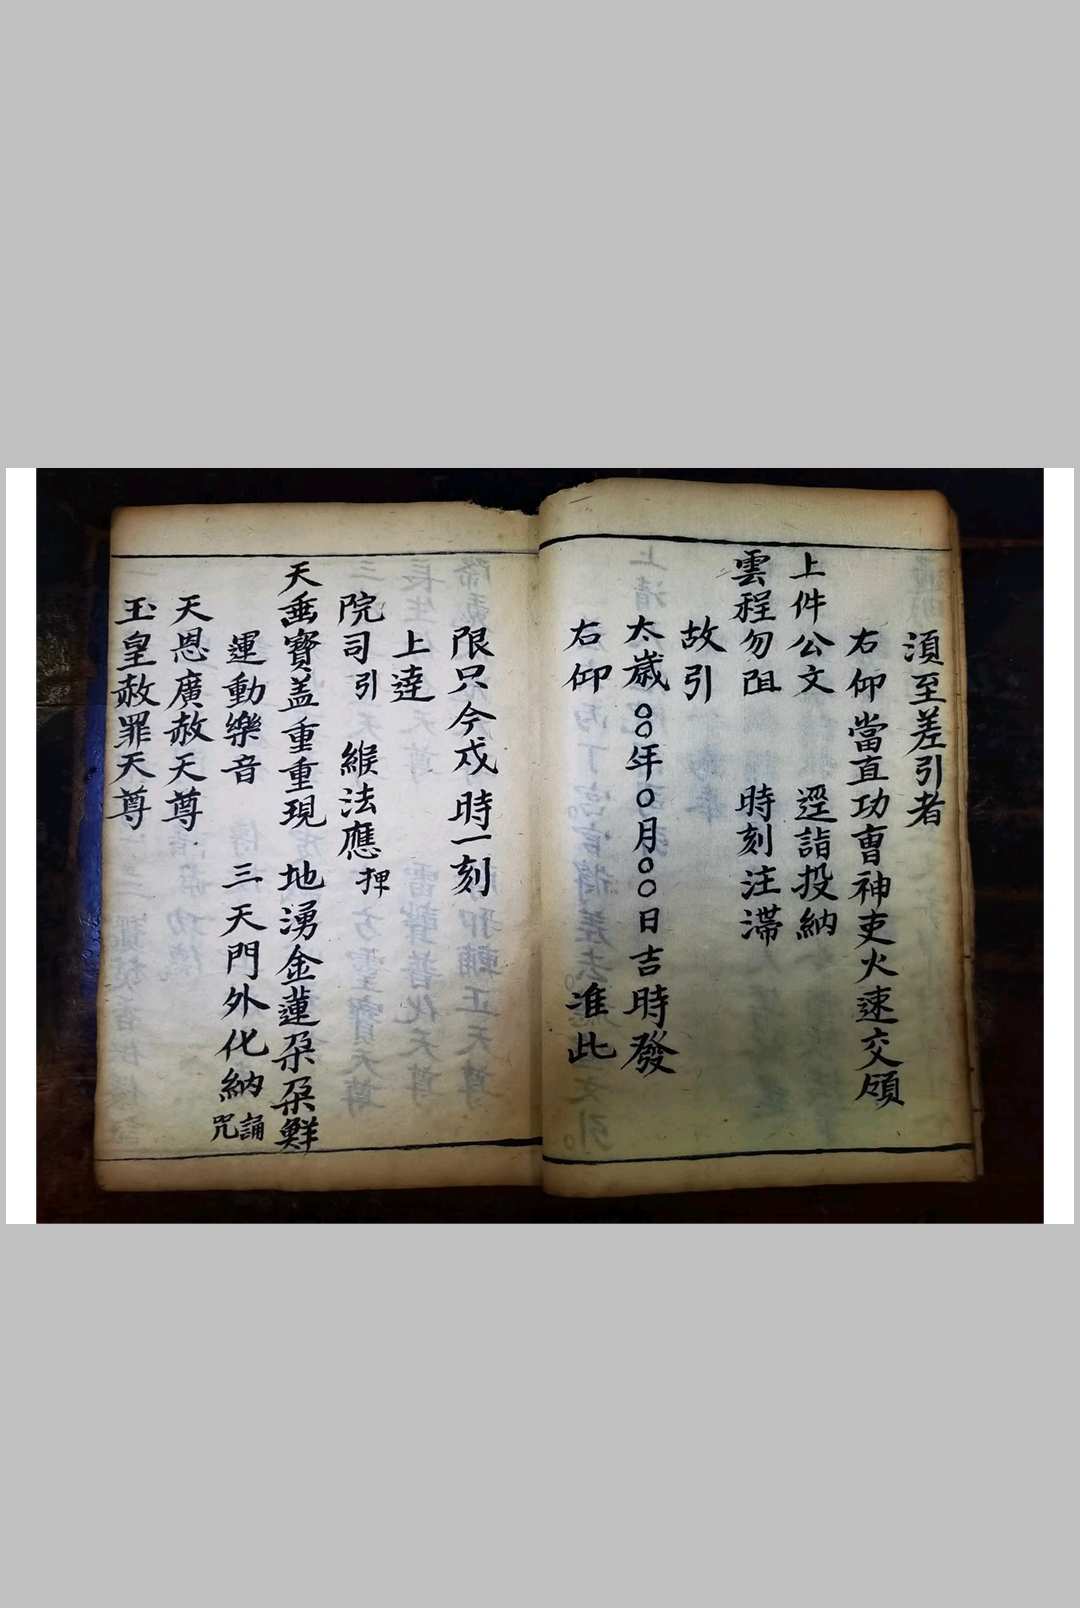 湏至差引者
右仰當直功曹神吏火速交領
上件公文 逕詣投納
雲程勿阻 時刻注滯
故引
太歲〇〇年〇月〇〇日吉時發
右仰 准此
限只今戍時一刻
上達
院司引 緱法應押
天垂寶盖重重現 地湧金蓮朶朶鮮
運動樂音 三天門外化納誦咒
天恩廣赦天尊
玉皇赦罪天尊